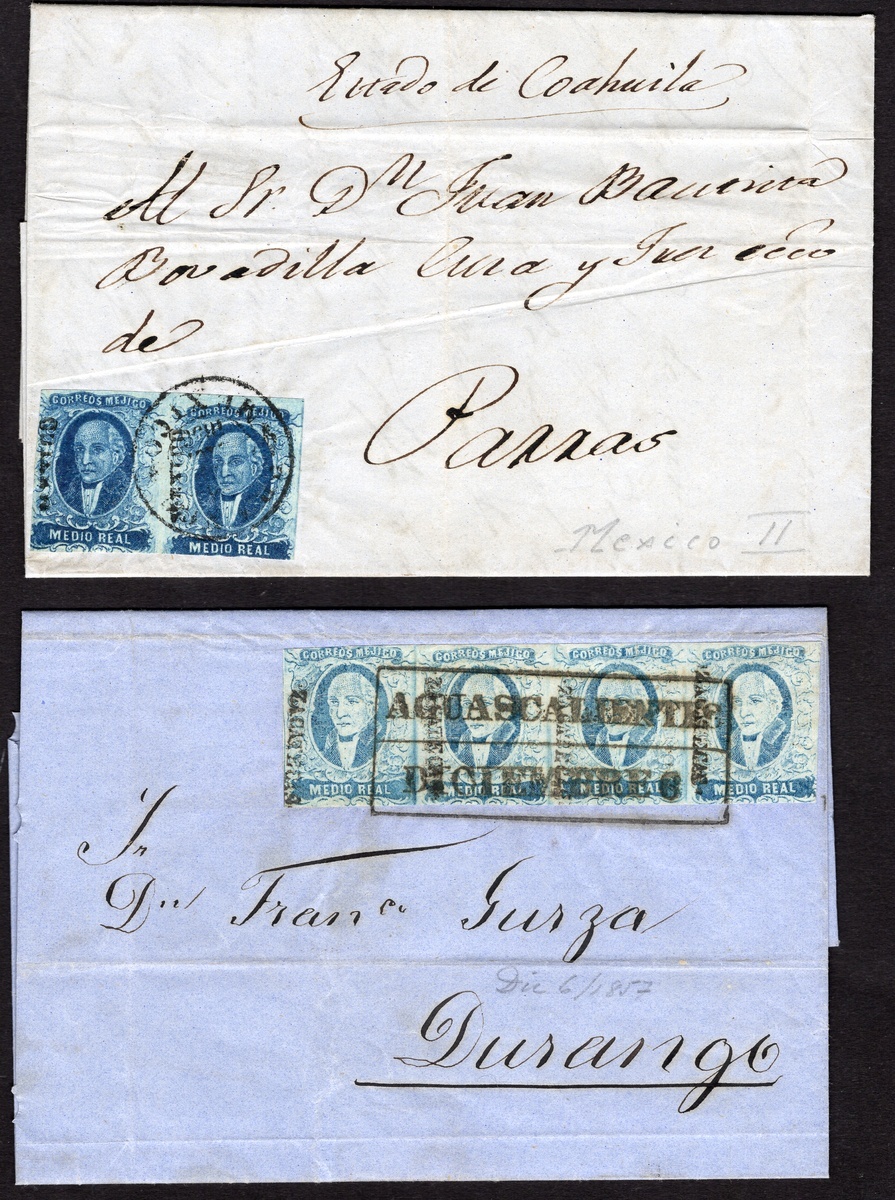 Estado de Coahuila
Al Sr. Dn Juan Bautista
Bovadilla Cura y Juez ecco
de
Parras
CORREOS MEJICO CORREOS MEJICO
MEXICO MEXICO
MEDIO REAL MEDIO REAL
Mexico II
CORREOS MEJICO CORREOS MEJICO CORREOS MEJICO CORREOS MEJICO
ZACATECAS
AGUASCALIENTES
DICIEMBRE 6
MEDIO REAL MEDIO REAL MEDIO REAL MEDIO REAL
Sr
Dn Franco Gurza
Dic 6/1857
Durango